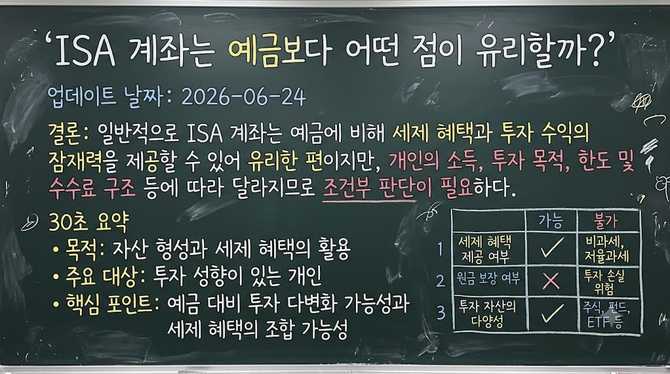 'ISA 계좌는 예금보다 어떤 점이 유리할까?'
업데이트 날짜: 2026-06-24
결론: 일반적으로 ISA 계좌는 예금에 비해 세제 혜택과 투자 수익의
잠재력을 제공할 수 있어 유리한 편이지만, 개인의 소득, 투자 목적, 한도 및
수수료 구조 등에 따라 달라지므로 조건부 판단이 필요하다.
30초 요약
• 목적: 자산 형성과 세제 혜택의 활용
• 주요 대상: 투자 성향이 있는 개인
• 핵심 포인트: 예금 대비 투자 다변화 가능성과
세제 혜택의 조합 가능성
가능 불가
1 세제 혜택 ✓ 비과세,
제공 여부 저율과세
2 원금 보장 여부 ✕ 투자 손실
위험
3 투자 자산의 ✓ 주식, 펀드,
다양성 ETF 등